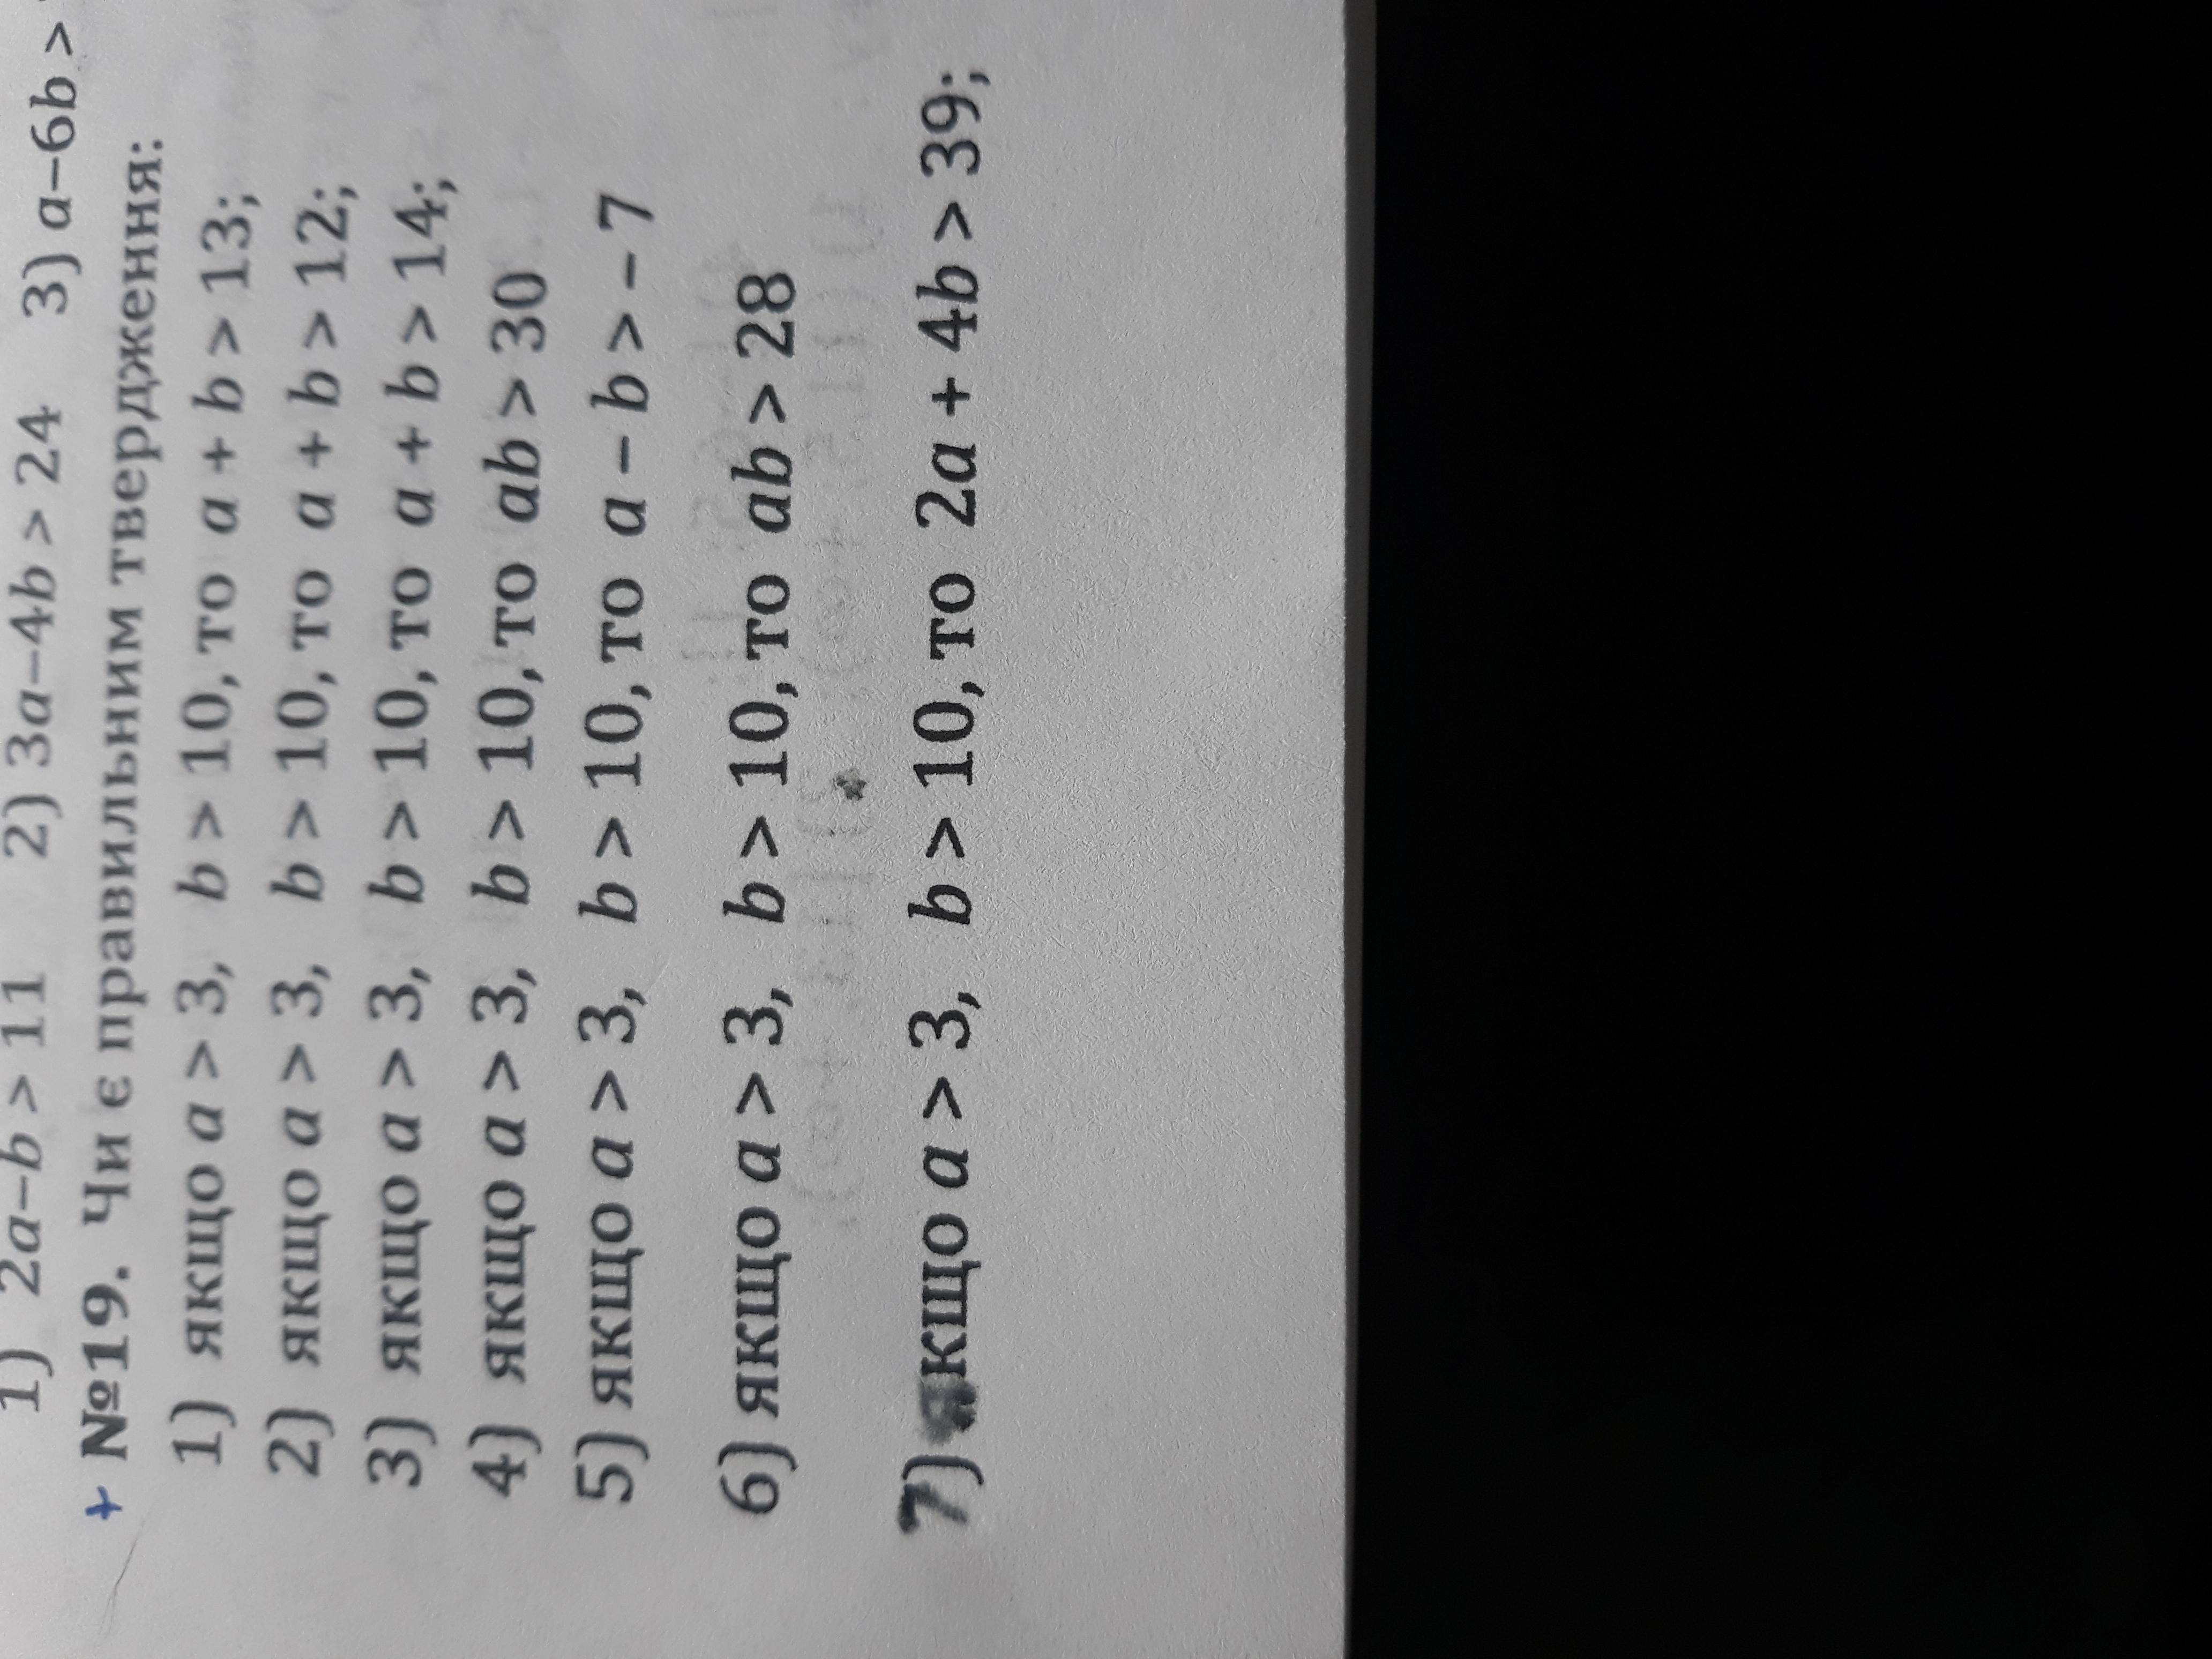 1) 2a–b > 11 2) 3a–4b > 24 3) a–6b >
+ №19. Чи є правильним твердження:
1) якщо a > 3, b > 10, то a + b > 13;
2) якщо a > 3, b > 10, то a + b > 12;
3) якщо a > 3, b > 10, то a + b > 14;
4) якщо a > 3, b > 10, то ab > 30
5) якщо a > 3, b > 10, то a – b > – 7
6) якщо a > 3, b > 10, то ab > 28
7) якщо a > 3, b > 10, то 2a + 4b > 39;